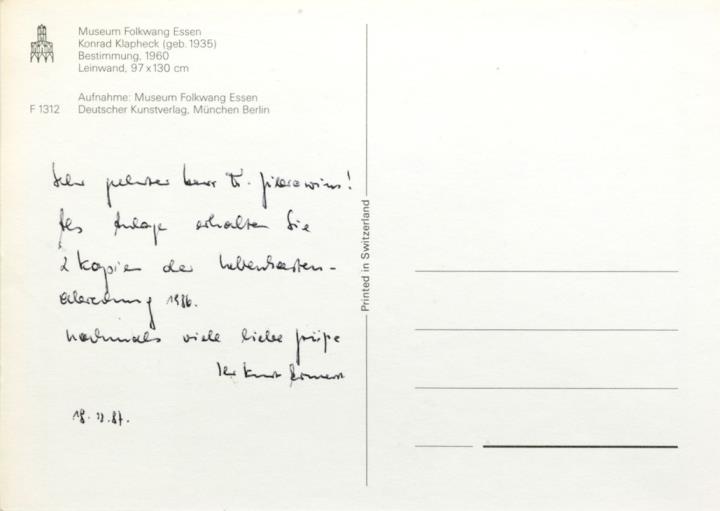 Museum Folkwang Essen
Konrad Klapheck (geb. 1935)
Bestimmung, 1960
Leinwand, 97 x 130 cm
Aufnahme: Museum Folkwang Essen
F 1312 Deutscher Kunstverlag, München Berlin
Sehr geehrter Herr Dr.
Als Anlage erhalten Sie
2 Kopien der Nebenkosten-
abrechnung 1986.
Nochmals viele liebe Grüße
Ihr Kurt
Printed in Switzerland